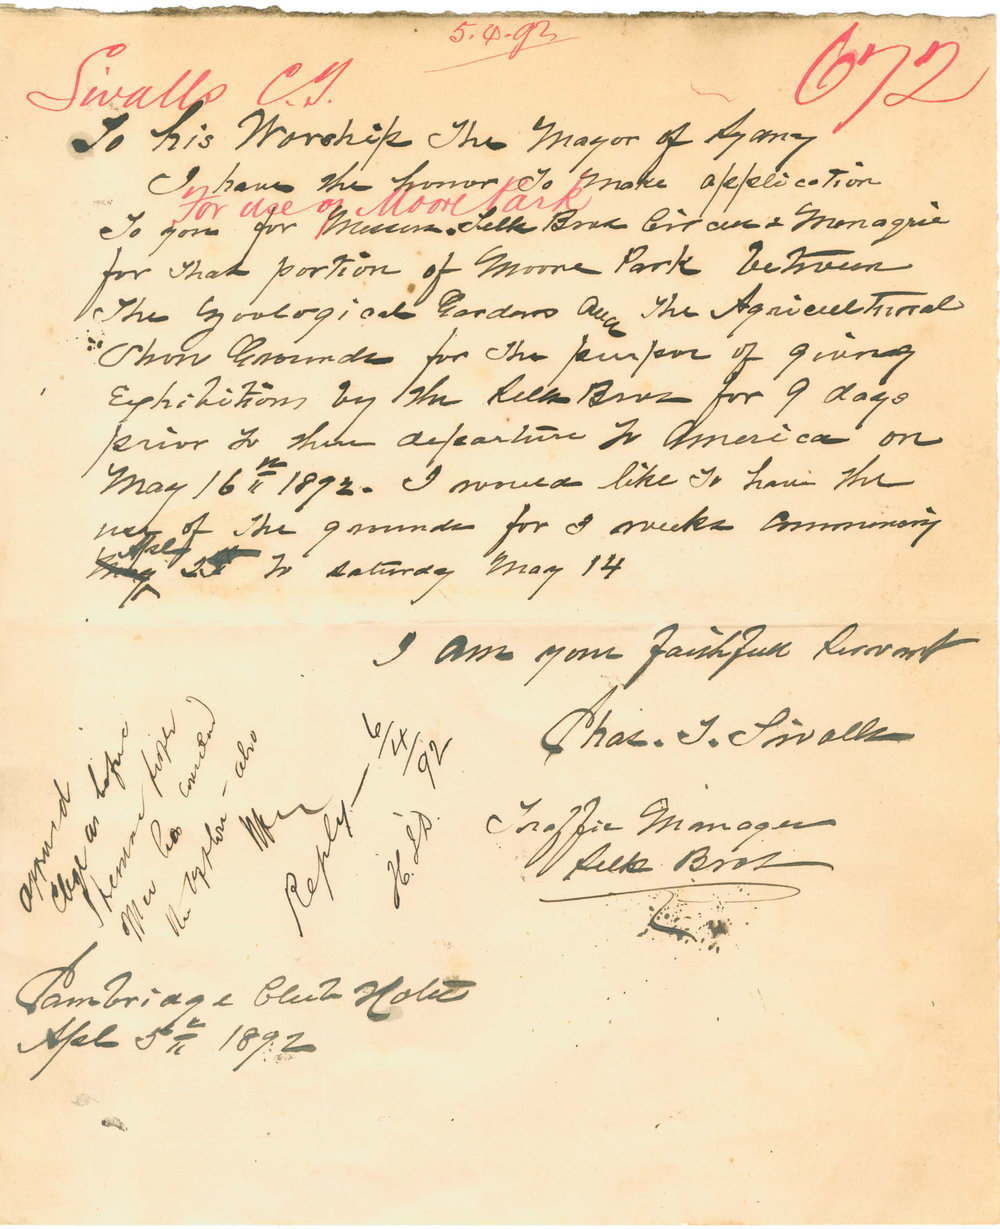 5.4.92
Sivalls C. T.
672
To his Worship The Mayor of Sydney
I have the honor To Make application
For use of Moore Park
To you for Messrs. Sells Bros Circus & Menagrie
for that portion of Moore Park between
The Zoological Gardens and The Agricultural
Show Grounds for The purpose of giving
Exhibitions by the Sells Bros for 9 days
prior to there departure to America on
May 16th 1892. I would like to have the
use of the grounds for 3 weeks commencing
Apl 25th to Saturday May 14
I am your faithfull Servant
Chas. T. Sivalls
Traffic Manager
Sells Bros
approved
Charge as before
the
also
Reply— 6/4/92
Cambridge Club Hotel
Apl 5th 1892